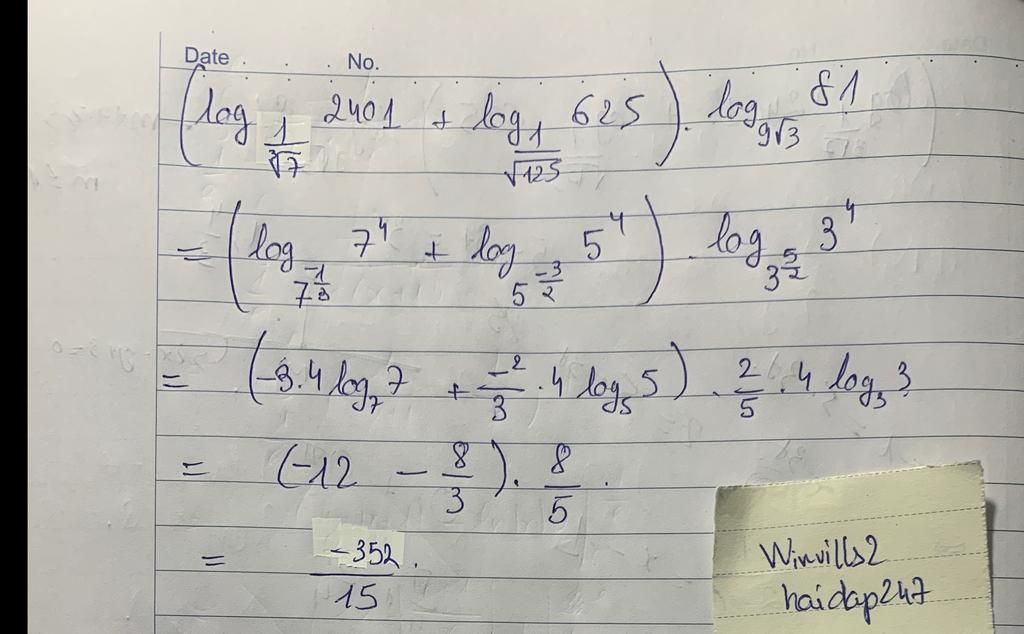 Date No.
(log_{1/∛7} 2401 + log_{1/√125} 625) . log_{9√3} 81
= (log_{7^{-1/3}} 7^4 + log_{5^{-3/2}} 5^4) . log_{3^{5/2}} 3^4
= (-3.4 log_7 7 + -2/3 . 4 log_5 5) . 2/5 . 4 log_3 3
= (-12 - 8/3) . 8/5 .
= -352/15 .
Winvills2
haidap247